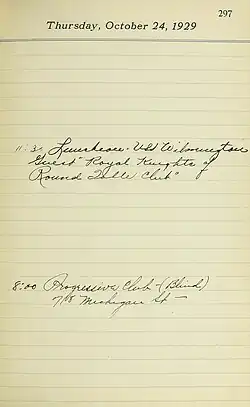 297
Thursday, October 24, 1929
11:30 Luncheon - Old Wilmington
Guest "Royal Knights of
Round Table Club"
8:00 Progressive Club - (Blind)
Michigan St -